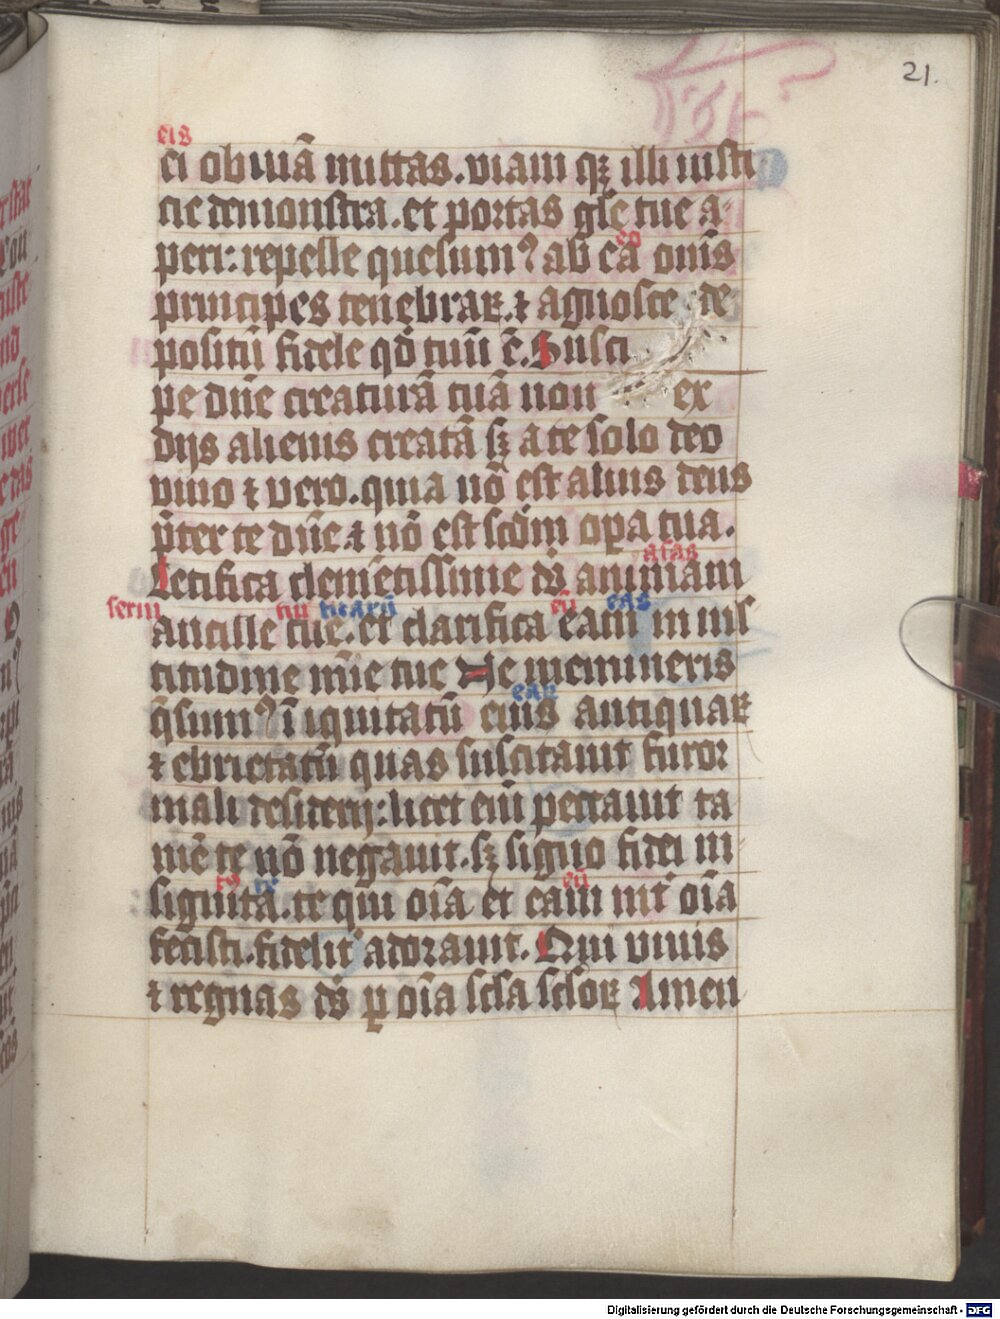 21.
eis
ei obuiā mittas. viam qꝫ illi iusti
cie demonstra. et portas gl̄e tue a-
eo
peri: repelle quesumꝰ ab ea om̄s
principes tenebraꝝ. ⁊ agnosce de
positū fidele qd̄ tuū ē. Susci
pe dn̄e creaturā tuā non ex
dijs alienis creatā sꝫ a te solo deo
viuo ⁊ vero. quia nō est alius deus
p̄ter te dn̄e ⁊ nō est scd̄m opa tua.
aīas
Letifica clemētissime d̄s animam
serui tui tuarū eū eas
ancille tue. et clarifica eam in ml̄
titudine mīe tue Ne memineris
eaꝝ
q̄sumꝰ īiquitatū eius antiquaꝝ
⁊ ebrietatū quas suscitauit furor
mali desiderij: licet em̄ peccauit ta
mē te nō negauit. sꝫ signo fidei in
eū
signita. te qui oīa et eam int̄ oīa
fecisti. fidelit̄ adorauit. Qui viuis
⁊ regnas ds̄ ꝑ oīa scl̄a scl̄oꝝ Amen
Digitalisierung gefördert durch die Deutsche Forschungsgemeinschaft - DFG